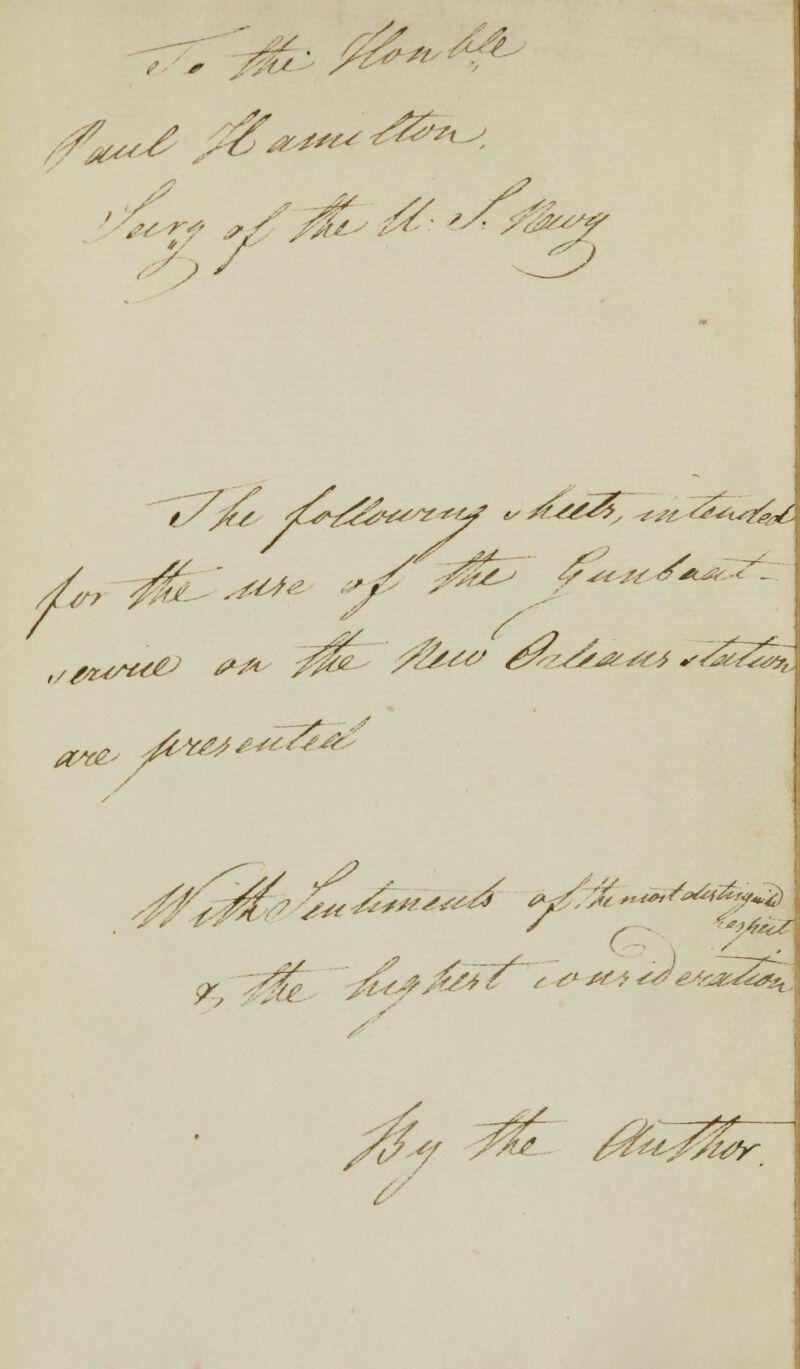 To the Honble
Paul Hamilton,
Secry of the U. S. Navy
The following sheets, intended
for the use of the Gunboat-
service on the New Orleans station
are presented
With Sentiments of the most distinguid
respect
&, the highest consideration
By the Author.